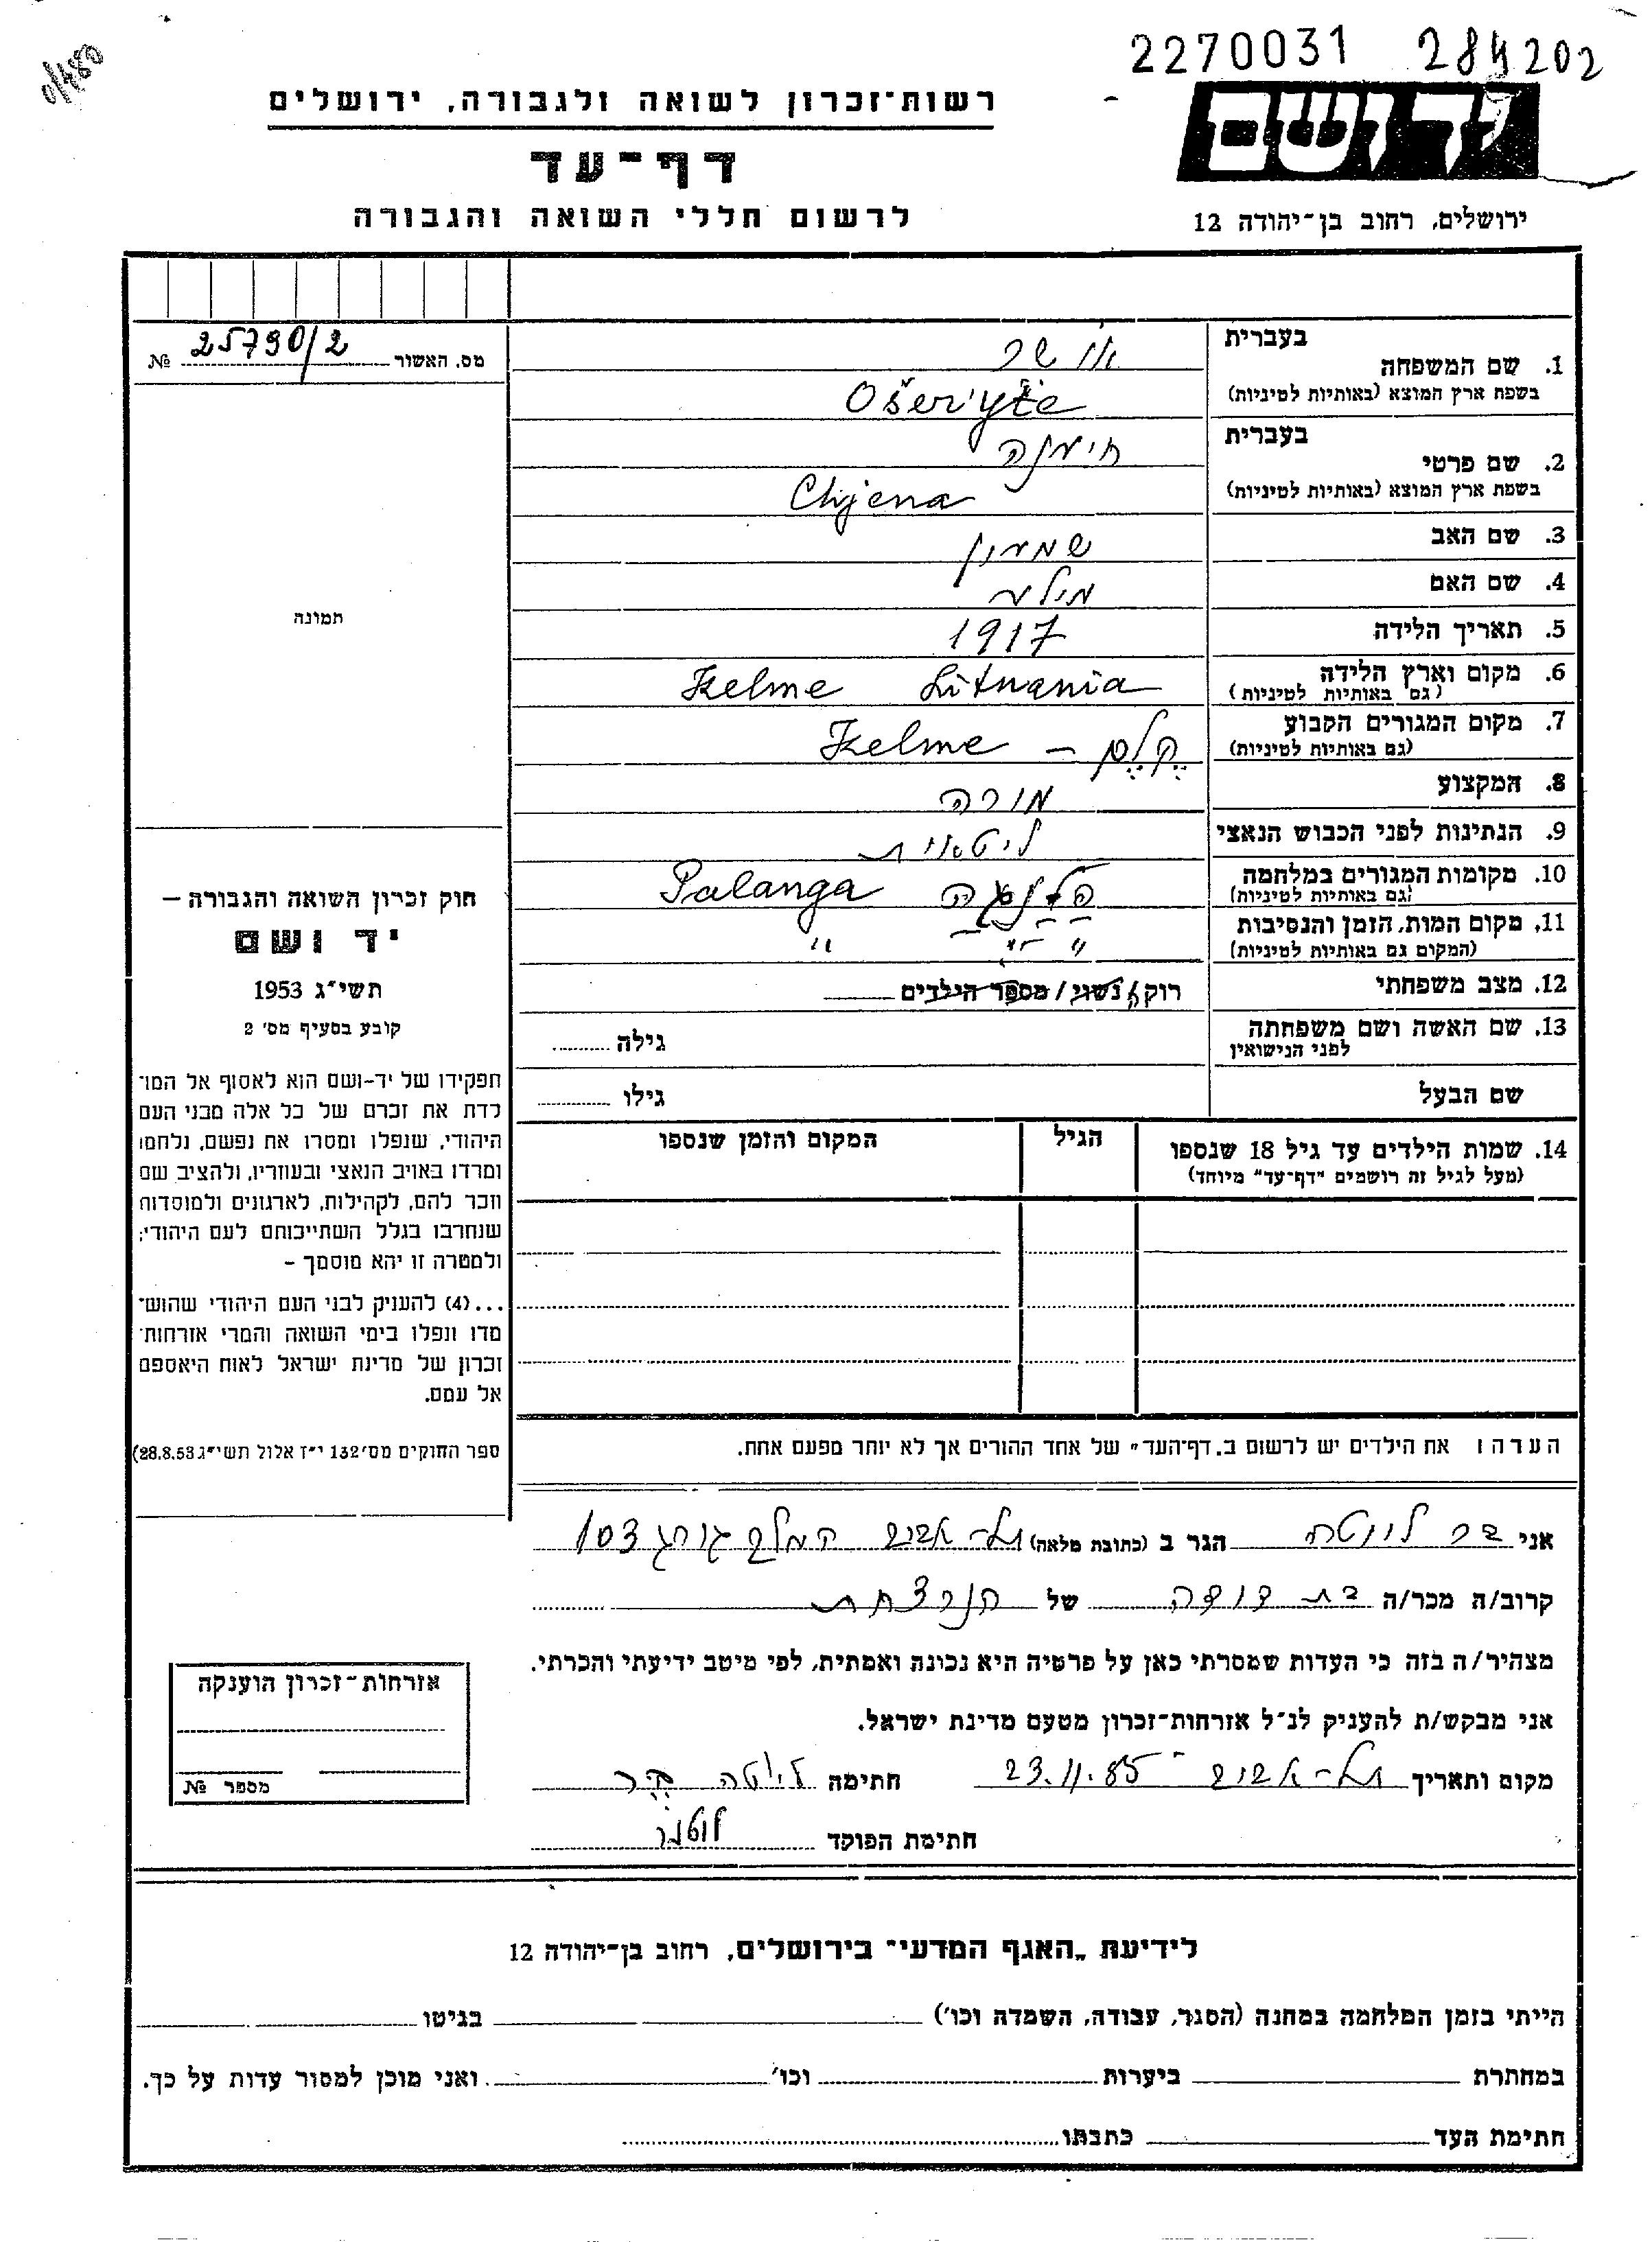 2270031 284202
רשות־זכרון לשואה ולגבורה, ירושלים
יד ושם
דף־עד
לרשום חללי השואה והגבורה
ירושלים, רחוב בן־יהודה 12
מס. האשור 25790/2 №
בעברית
1. שם המשפחה אושר
בשפת ארץ המוצא (באותיות לטיניות) Ošerytė
בעברית
2. שם פרטי חיענה
בשפת ארץ המוצא (באותיות לטיניות) Chjena
3. שם האב שמעון
4. שם האם
5. תאריך הלידה 1917
6. מקום וארץ הלידה Kelme Litnania
(גם באותיות לטיניות)
7. מקום המגורים הקבוע קלם – Kelme
(גם באותיות לטיניות)
8. המקצוע מורה
9. הנתינות לפני הכבוש הנאצי ליטאית
10. מקומות המגורים במלחמה פלנגה Palanga
(גם באותיות לטיניות)
11. מקום המות, הזמן והנסיבות " –"– "
(המקום גם באותיות לטיניות)
12. מצב משפחתי רוק/ה נשוי/ מספר הילדים
13. שם האשה ושם משפחתה
לפני הנישואין
גילה
שם הבעל גילו
14. שמות הילדים עד גיל 18 שנספו
(מעל לגיל זה רושמים "דף־עד" מיוחד)
הגיל
המקום והזמן שנספו
תמונה
חוק זכרון השואה והגבורה –
יד ושם
תשי"ג 1953
קובע בסעיף מס' 2
תפקידו של יד-ושם הוא לאסוף אל המו־
לדת את זכרם של כל אלה מבני העם
היהודי, שנפלו ומסרו את נפשם, נלחמו
ומרדו באויב הנאצי ובעוזריו, ולהציב שם
וזכר להם, לקהילות, לארגונים ולמוסדות
שנחרבו בגלל השתייכותם לעם היהודי;
ולמטרה זו יהא מוסמך –
...(4) להעניק לבני העם היהודי שהוש־
מדו ונפלו בימי השואה והמרי אזרחות־
זכרון של מדינת ישראל לאות היאספם
אל עמם.
ספר החוקים מס' 132 י"ז אלול תשי"ג 28.8.53)
הערה: את הילדים יש לרשום ב„דף־העד" של אחד ההורים אך לא יותר מפעם אחת.
אני בר ליוטה הגר ב (כתובת מלאה) תל-אביב המלך גורג 103
קרוב/ה מכר/ה בת דודה של הנרצחת
מצהיר/ה בזה כי העדות שמסרתי כאן על פרטיה היא נכונה ואמתית, לפי מיטב ידיעתי והכרתי.
אני מבקש/ת להעניק לנ"ל אזרחות־זכרון מטעם מדינת ישראל.
מקום ותאריך תל-אביב 23.11.85 חתימה ליוטה בר
חתימת הפוקד
אזרחות־זכרון הוענקה
מספר №
לידיעת „האגף המדעי" בירושלים, רחוב בן־יהודה 12
הייתי בזמן המלחמה במחנה (הסגר, עבודה, השמדה וכו') בגיטו
במחתרת ביערות וכו' ואני מוכן למסור עדות על כך.
חתימת העד כתבתו